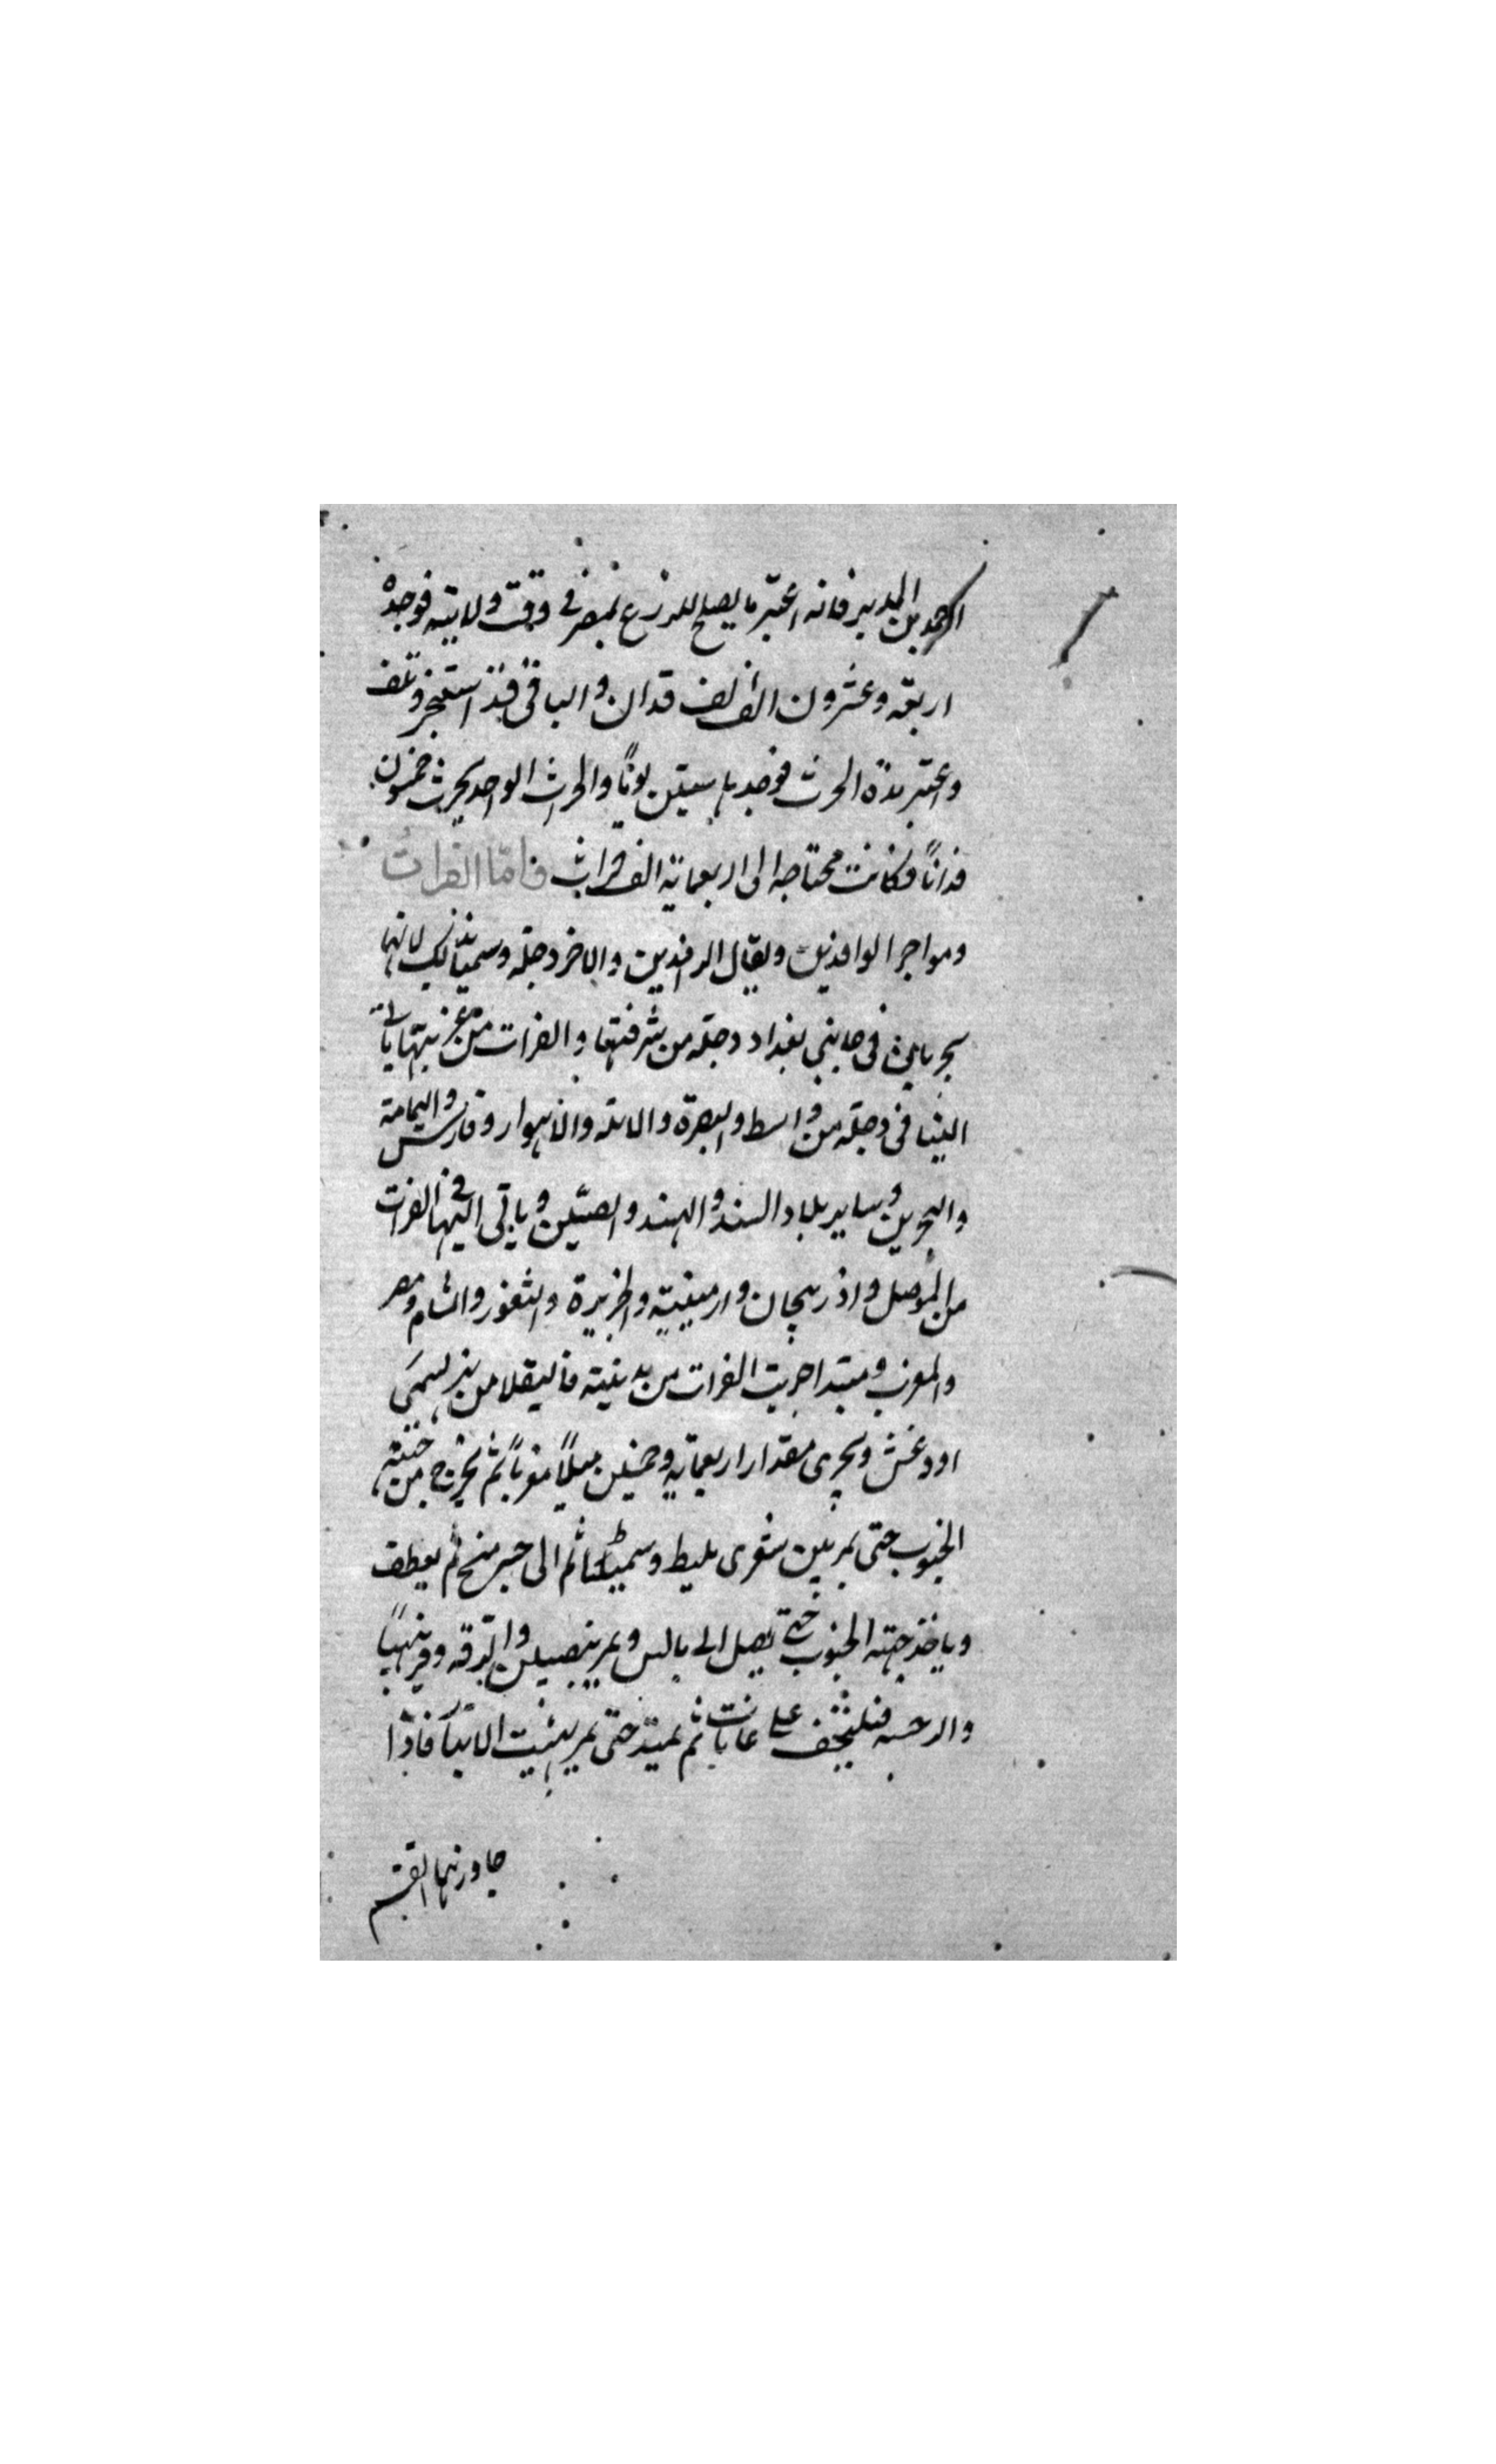 احمد بن المدبر فانه اعتبر ما يصلح للزرع بمصر فى وقت ولايته فوجده
اربعه وعشرون الف الف فدان والباقى قد استبحر وتلف
واعتبر مدة الحرث فوجدها ستين يوماً والحراث الواحد يحرث خمسون
فداناً فكانت محتاجه الى اربعماية الف حراث فامّا الفرات
وهو احد الوافدين ويقال الرافدين والاخر دجله وسميا بذلك لانهما
يجريان فى جانبي بغداد دجله من شرقيها والفرات من غربيها ياتى
الينا فى دجله من واسط والبصرة والابله والاهواز وفارس واليمامة
والبحرين وساير بلاد السند والهند والصين وياتى اليها فى الفرات
من الموصل واذربيجان وارمينية والجزيرة والثغور والشام ومصر
والمغرب ومبتدا جريت الفرات من مدينة قاليقلا من نهر يسمى
اودغش ويجرى مقدار اربعماية وخمسين ميلاً مغرباً ثم يخرج من جهته
الجنوب حتى يمر بين ثغرى مليط وسميطا ثم الى جسر منبج ثم يعطف
وياخذ جهته الجنوب حتى يصل الى بالس ويمر بنصيبين والرقه وقرنهيا
والرحبه فيلتحف على عانات ثم يمتد حتى يمر بهيت الانبار فاذا
جاوزنها انقسم